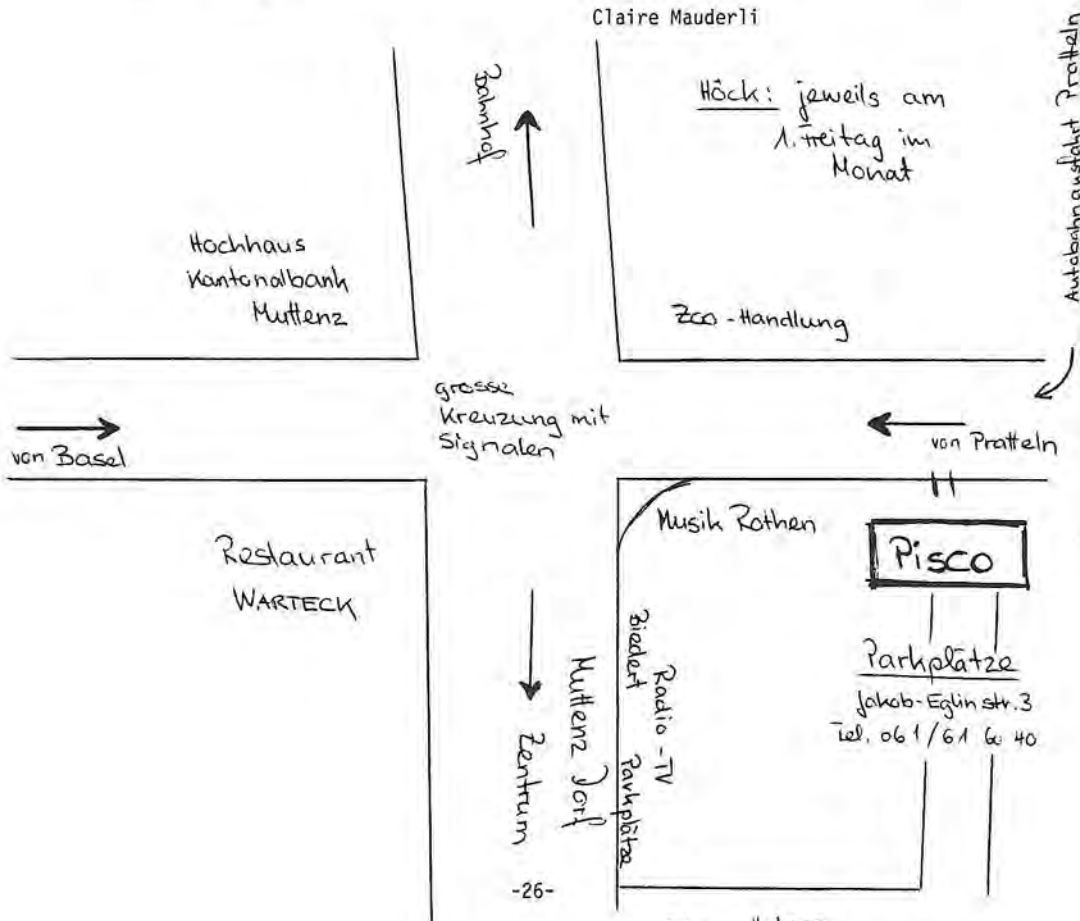 Claire Mauderli
Bahnhof
Höck: jeweils am
1. Freitag im
Monat
Autobahnausfahrt Pratteln
Hochhaus
Kantonalbank
Muttenz
Zoo-Handlung
grosse
Kreuzung mit
Signalen
von Basel
von Pratteln
Restaurant
WARTECK
Musik Rothen
Pisco
Parkplätze
Jakob-Eglinstr. 3
Tel. 061/61 60 40
Radio-TV
Biedert
Parkplätze
Muttenz Dorf
Zentrum
-26-